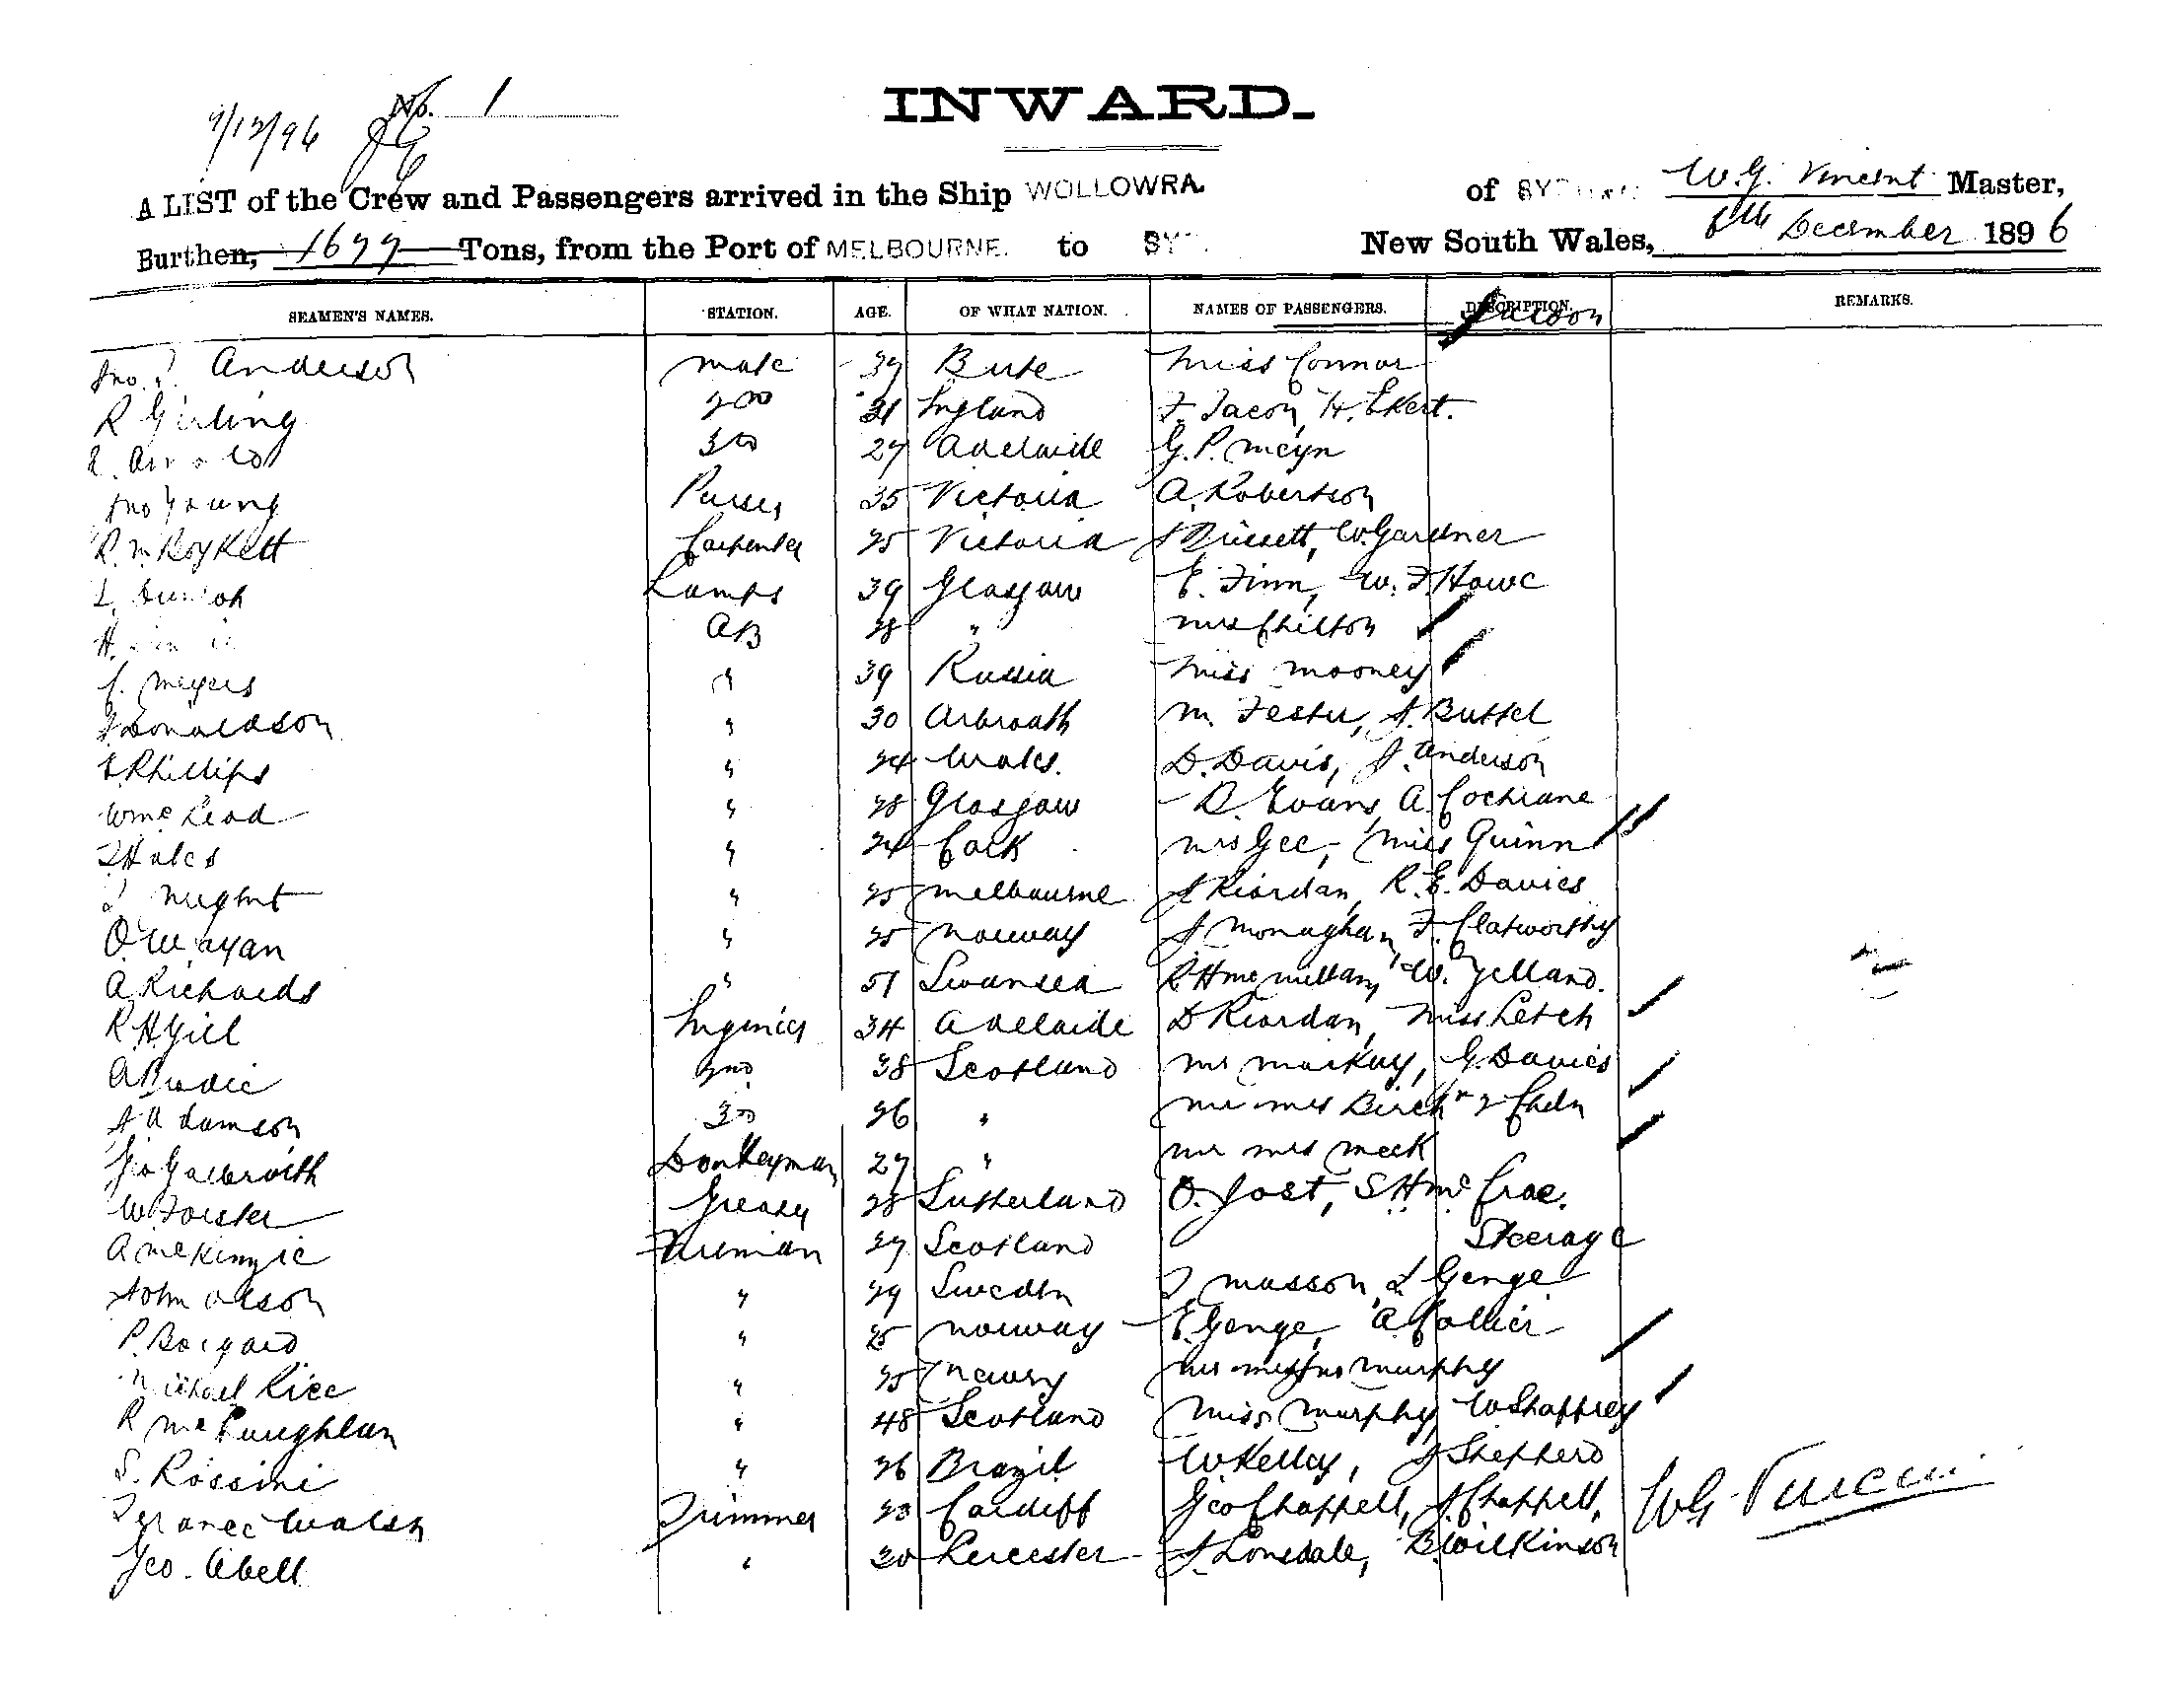 No. 1
INWARD.
7/12/96
A LIST of the Crew and Passengers arrived in the Ship WOLLOWRA. of W. G. Vincent Master,
Burthen, 1699 Tons, from the Port of MELBOURNE. to SY New South Wales, December 1896
SEAMEN'S NAMES. STATION. AGE. OF WHAT NATION. NAMES OF PASSENGERS. DESCRIPTION. REMARKS.
Saloon
Jno. Anderson mate 39 Bute Miss Connor
R Girling 2nd 31 England F. Jacon, H. Ekert.
3rd 27 Adelaide G. P. Meyn
Jno Young Purser 35 Victoria A. Robertson
Carpenter 25 Victoria W. Gardner
Lamps 39 Glasgow E. Finn, W. F Howe
AB 28 " Mrs Chilton
C. Meyers " 39 Russia Miss Mooney
Donaldson " 30 Arbroath M. Fester, J. Buttel
E Phillips " 24 Wales. D. Davis, J. Anderson
W McLeod " 28 Glasgow D. Evans, A. Cochrane
Hales " 24 Cork Mrs Gee, Miss Quinn
Nugent " 25 Melbourne J Riordan, R. E. Davies
" 25 Norway J Monaghan, F. Clatworthy
A Richards " 51 Swansea R H McMillan, W. Yelland.
R. H. Gill Engineer 34 Adelaide D Riordan, Miss Letch
A Brodie 2nd 38 Scotland Mr Mackay, G. Davies
J A Lamson 3rd 26 " Mr Mrs Birch & 2 Chdn
Geo Galbraith Donkeyman 27 " Mr Mrs Meek
W. Forster Greaser 28 Sutherland O. Jost, S H McCrae.
A McKinzie Fireman 27 Scotland Steerage
John Olson " 29 Sweden J. Masson, L Genge
P. Borgard " 25 Norway E. Genge, A. Collier
Michael Rice " 25 Newry Murphy
R McLaughlan " 48 Scotland Miss Murphy, W Shaffrey
S. Rossini " 26 Brazil W Kelley, J Shepherd
Terance Walsh Trimmer 23 Cardiff Geo Chappell, J. Chappell,
Geo. Abell " 30 Leicester J. Lonsdale, B. Wilkinson
W G Vincent